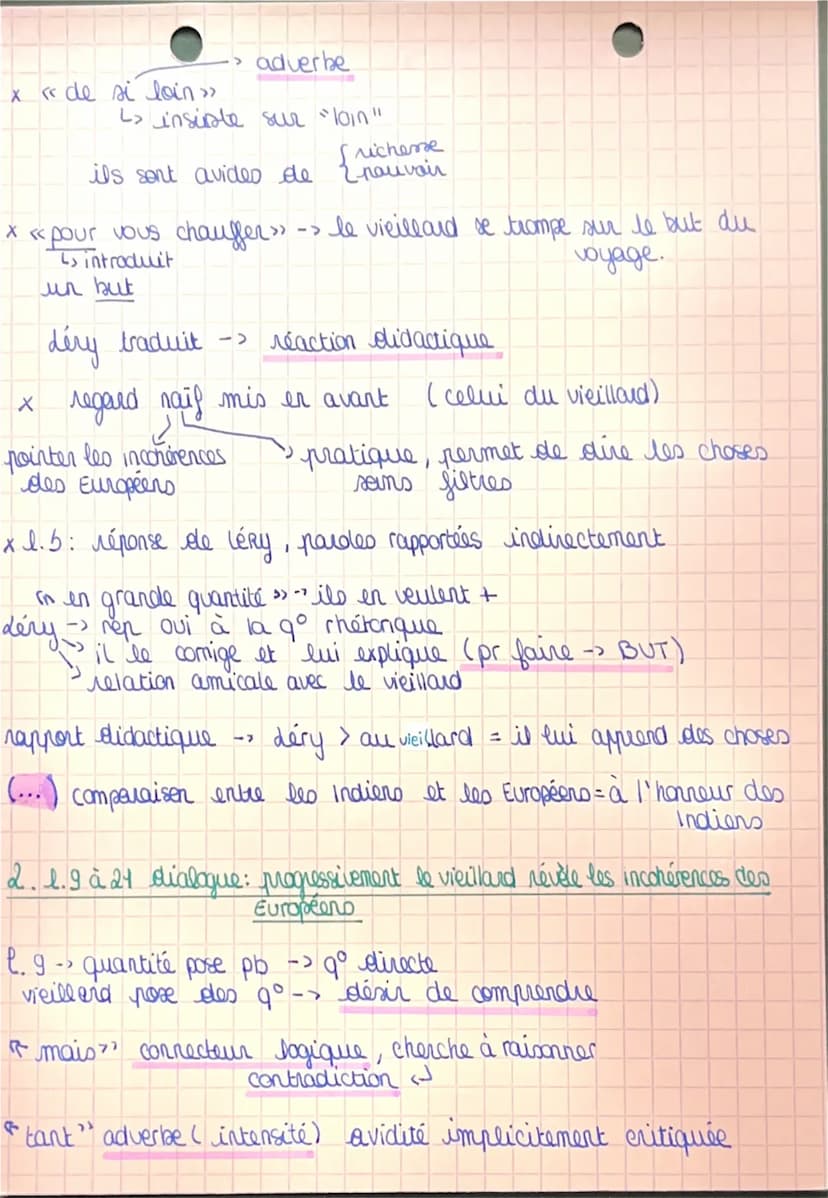 -> adverbe
x « de si loin »
↳ insiste sur "loin"
ils sont avides de { richesse
pouvoir
x « pour vous chauffer » -> le vieillard se trompe sur le but du
voyage.
↳ introduit
un but
Léry traduit -> réaction didactique
x regard naïf mis en avant (celui du vieillard)
pointer les incohérences
des Européens
-> pratique, permet de dire les choses
sans filtres
x l.5: réponse de LÉRY, paroles rapportées indirectement
« en grande quantité » -> ils en veulent +
Léry -> rep oui à la q° rhétorique
-> il le corrige et lui explique (pr faire -> BUT)
-> relation amicale avec le vieillard
rapport didactique -> Léry > au vieillard = il lui apprend des choses
(...) comparaison entre les Indiens et les Européens = à l'honneur des
Indiens
2. l.9 à 21 dialogue: progressivement le vieillard révèle les incohérences des
Européens
l.9 -> quantité pose pb -> q° directe
vieillard pose des q° -> désir de comprendre
« mais » connecteur logique, cherche à raisonner
contradiction ↵
"tant" adverbe (intensité) avidité implicitement critiquée